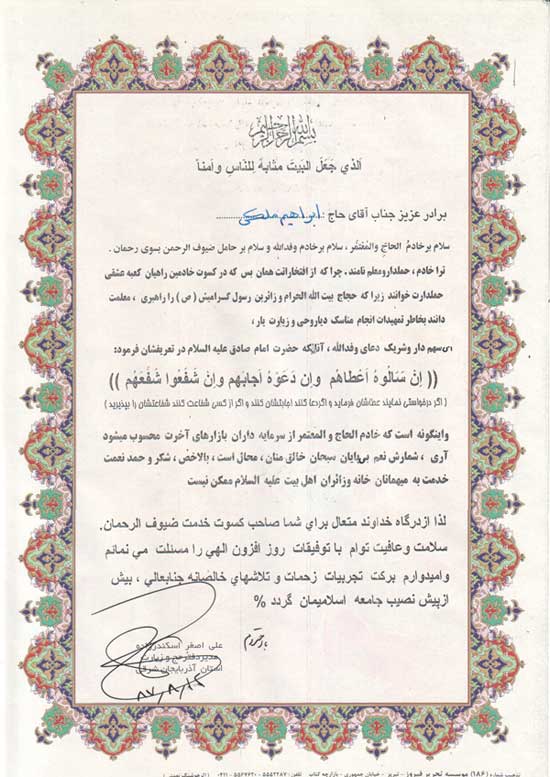 بسم الله الرحمن الرحیم
اَلذي جَعَلَ البَيتَ مثابةً للناسِ و اَمناً
برادر عزیز جناب آقای حاج : ابراهیم ملکی
سلام بر خادمُ الحاج والمُعتَمر ، سلام بر خادم وفدالله و سلام بر حامل ضیوف الرحمن بسوی رحمان .
ترا خادم ، حملدار و معلم نامند . چرا که از افتخاراتت همان بس که در کسوت خادمین راهیان کعبه عشقی
حملدارت خوانند زیرا که حجاج بیت الله الحرام و زائرین رسول گرامیش ( ص ) را راهبری ، معلمت
دانند بخاطر تمهیدات انجام مناسک دیاروحی و زیارت یار،
ای سهم دار و شریک دعای وفدالله ، آنانکه حضرت امام صادق علیه السلام در تعریفشان فرمود:
(( اِنْ سَالُوهُ اَعْطاهُم وإن دَعَوْهُ اَجابَهُم وإنْ شَفَعُوا شَفَّعَهُم ))
( اگر درخواستی نمایند عطاشان فرماید و اگردعا کنند اجابتشان کنند و اگر از کسی شفاعت کنند شفاعتشان را بپذیرد )
واینگونه است که خادم الحاج و المعتمر از سرمایه داران بازارهای آخرت محسوب میشود
آری ، شمارش نعم بی پایان سبحان خالق منان ، محال است ، بالاخص ، شکر و حمد نعمت
خدمت به میهمانان خانه وزائران اهل بیت علیه السلام ممکن نیست
لذا از درگاه خداوند متعال براي شما صاحب کسوت خدمت ضیوف الرحمان،
سلامت و عافیت توام با توفیقات روز افزون الهي را مسئلت مي نمائم
و امیدوارم برکت تجربیات زحمات و تلاشهاي خالصانه جنابعالي ، بیش
از پیش نصیب جامعه اسلامیمان گردد %
علی اصغر اسکندرزاده
مدیر دفتر حج و زیارت
استان آذربایجان شرقی
۸۷/۸/۱۲
تذهیب شماره (۱۸۶) موسسه تحریر فیروز - تبریز - خیابان جمهوری - بازارچه کتاب تلفن: ۵۵۵۳۲۸۷ - ۵۵۶۷۶۲۰ - ۰۴۱۱